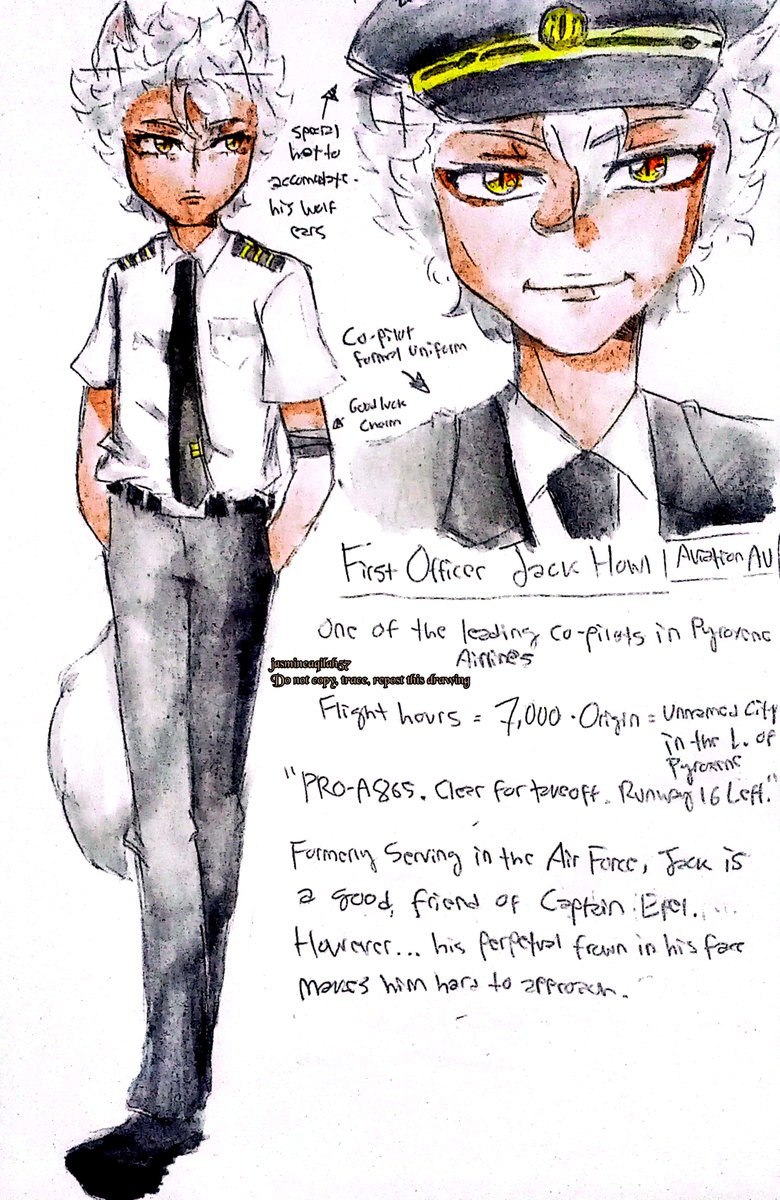 special
hat to
accomodate
his wolf
ears
Co-pilot
formal uniform
Good luck
charm
First Officer Jack Howl | Aviation AU
One of the leading co-pilots in Pyroxene
Airlines
jasmineaqilah57
Do not copy, trace, repost this drawing
Flight hours = 7,000 · Origin = Unnamed City
in the L. of
Pyroxene
"PRO-A865. Clear for takeoff. Runway 16 Left."
Formerly Serving in the Air Force, Jack is
a good friend of Captain Epel.
However... his perpetual frown in his face
makes him hard to approach.